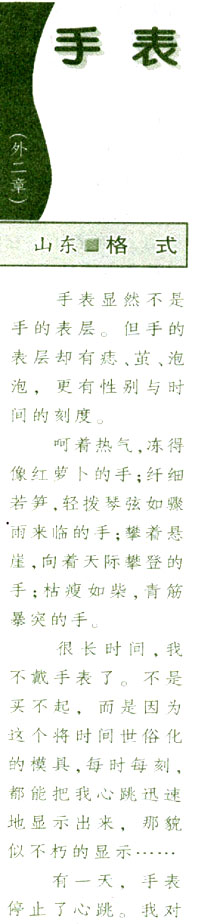 手表
（外二章）
山东■格 式
手表显然不是
手的表层。但手的
表层却有痣、茧、泡
泡，更有性别与时
间的刻度。
呵着热气，冻得
像红萝卜的手；纤细
若笋，轻拨琴弦如骤
雨来临的手；攀着悬
崖，向着天际攀登的
手；枯瘦如柴，青筋
暴突的手。
很长时间，我
不戴手表了。不是
买不起，而是因为
这个将时间世俗化
的模具，每时每刻，
都能把我心跳迅速
地显示出来，那貌
似不朽的显示……
有一天，手表
停止了心跳。我对